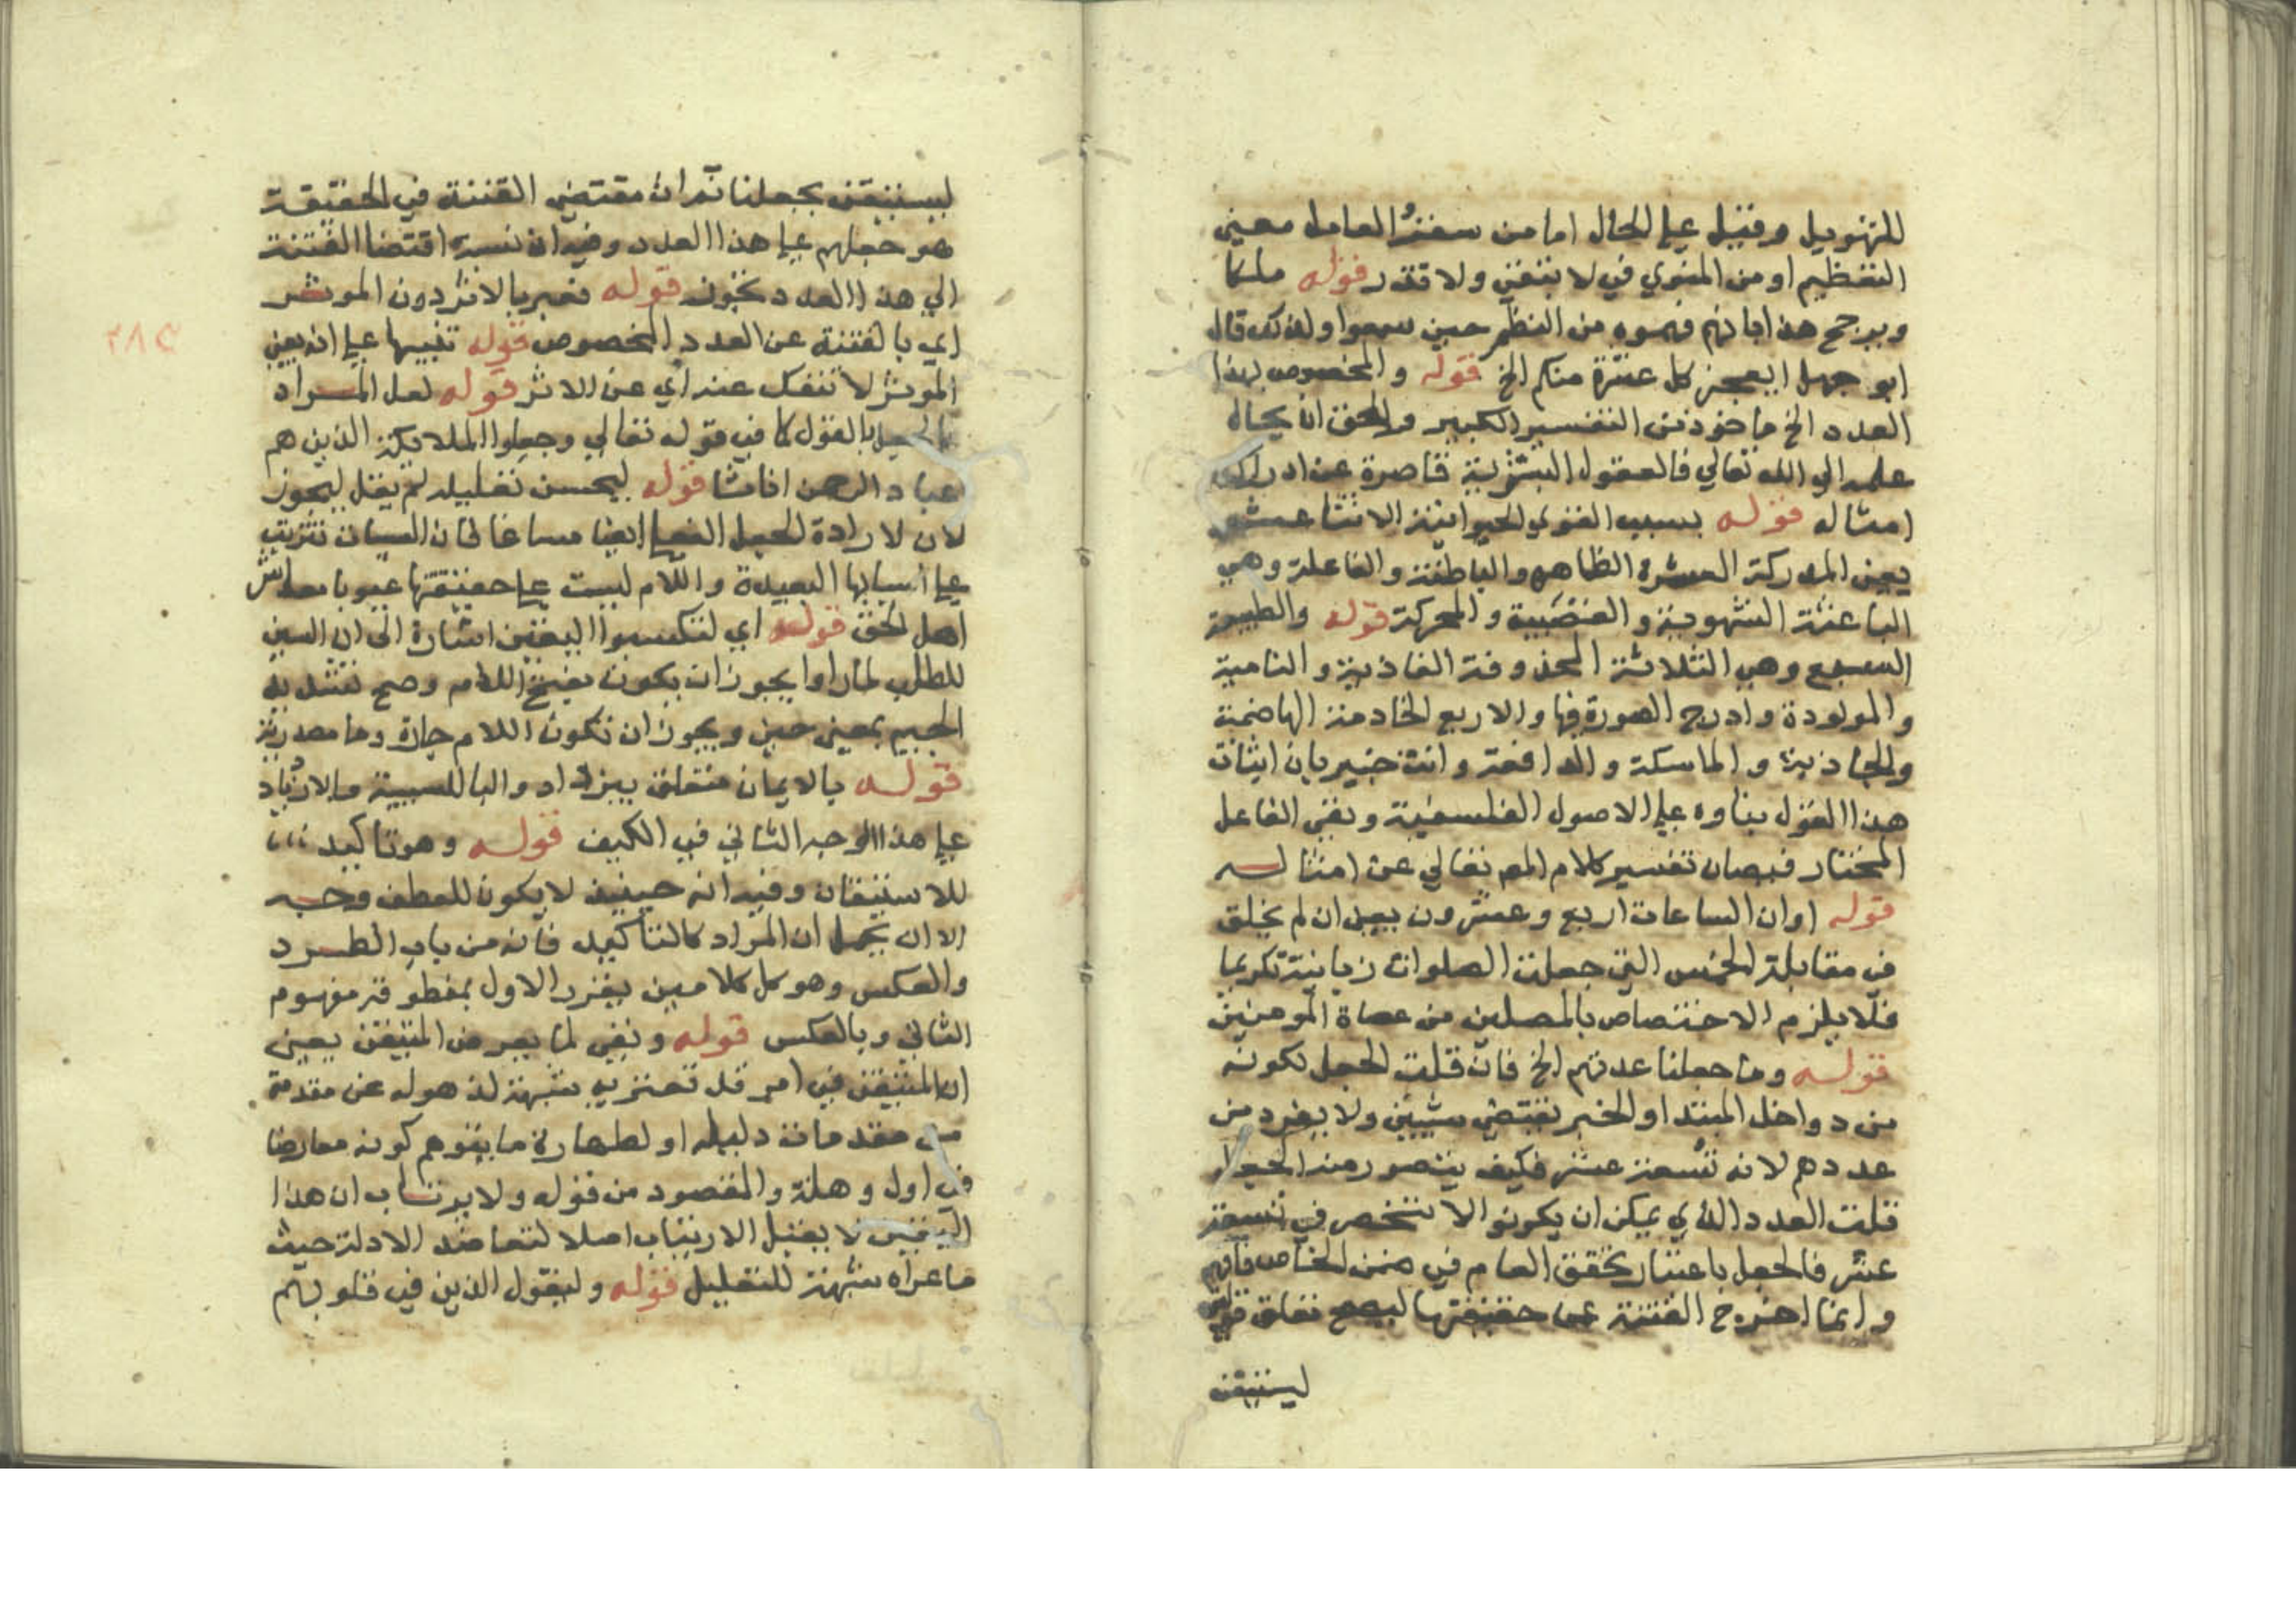 للتهويل وقيل علي الحال اما من سقر والعامل معني
التعظيم او من المنوي في لا تبقي ولا تذر قوله ملكا
ويرجح هذا بانهم فهموه من النظم حين سمعوا ولذلك قال
ابو جهل ايعجز كل عشرة منكم الخ قوله والمخصوص لهذا
العدد الخ ماخوذ من التفسير الكبير والحق ان يحال
علمه الي الله تعالي فالعقول البشرية قاصرة عن ادراك
امثاله قوله بسبب القوي الحيوانية الاثنتا عشر
يعني المدركة العشرة الظاهرة والباطنة والفاعلة وهي
الباعثة الشهوية والغضبية والمحركة قوله والطبيعية
السبع وهي الثلاثة المخدومة الغاذية والنامية
والمولدة وادرج المصورة فيها والاربع الخادمة الهاضمة
والجاذبة والماسكة والدافعة وانت خبير بان اثبات
هذا القول بناوه علي الاصول الفلسفية ونفي الفاعل
المختار فيصان تفسير كلام الله تعالي عن امثاله
قوله او ان الساعات اربع وعشرون يعين ان لم يخلق
في مقابلة الخمس التي جعلت الصلوات زبانية تكريما
فلا يلزم الاختصاص بالمصلين من عصاة المومنين
قوله وما جعلنا عدتهم الخ فان قلت الجعل لكونه
من دواخل المبتدا والخبر يقتضي شيئين ولا يفرد من
عددهم لانه تسعة عشر فكيف يتصور منه الجعل
قلت العدد الذي يمكن ان يكونوا لا ينحصر في تسعة
عشر فالجعل باعتبار تحقق العام في ضمن الخاص فافهم
وانما اخرج الفتنة عن حقيقتها ليصح تعلق قوله
ليستيقن
ليستيقن بجعلنا ثم ان مقتضي الفتنة في الحقيقة
هو جعلهم علي هذا العدد وفيه ان نسبة اقتضا الفتنة
الي هذا العدد تجوز قوله فعبر بالاثر دون الموثر
اي بالفتنة عن العدد المخصوص قوله تنبيها علي انه يعني
الموثر لا تنفك عنه اي عن الاثر قوله لعل المراد
بالجعل بالقول كما في قوله تعالي وجعلوا الملائكة الذين هم
عباد الرحمن اناثا قوله ليحسن تعليله لم يقل ليجوز
لان لارادة الجعل الفعلي ايضا مساغا لان المسببات تترتب
علي اسبابها البعيدة واللام ليست علي حقيقتها عندنا معاشر
اهل الحق قوله اي لتكسبوا اليقين اشارة الي ان السين
للطلب لما راوا يجوز ان يكون بفتح اللام وصح تشديد
الجيم بمعني حين ويجوز ان تكون اللام جارة وما مصدرية
قوله بالايمان متعلق بيزداد والبا للسببية والازدياد
علي هذا الوجه الثاني في الكيف قوله وهو تاكيد
للاستيقان وفيه انه حينيذ لا يكون للعطف وجه
الا ان يحمل ان المراد كالتاكيد فانه من باب الطرد
والعكس وهو كل كلامين يقرر الاول بمنطوقه مفهوم
الثاني وبالعكس قوله ونفي لما يعرض المتيقن يعني
ان المتيقن في امر قد تعتريه شبهة لذهوله عن مقدمة
من مقدمات دليله او لطهارة ما يتوهم كونه معارضا
في اول وهلة والمقصود من قوله ولا يرتاب ان هذا
اليقين لا يقبل الارتياب اصلا لتعاضد الادلة حيث
ما عراه شبهة للتعليل قوله وليقول الذين في قلوبهم